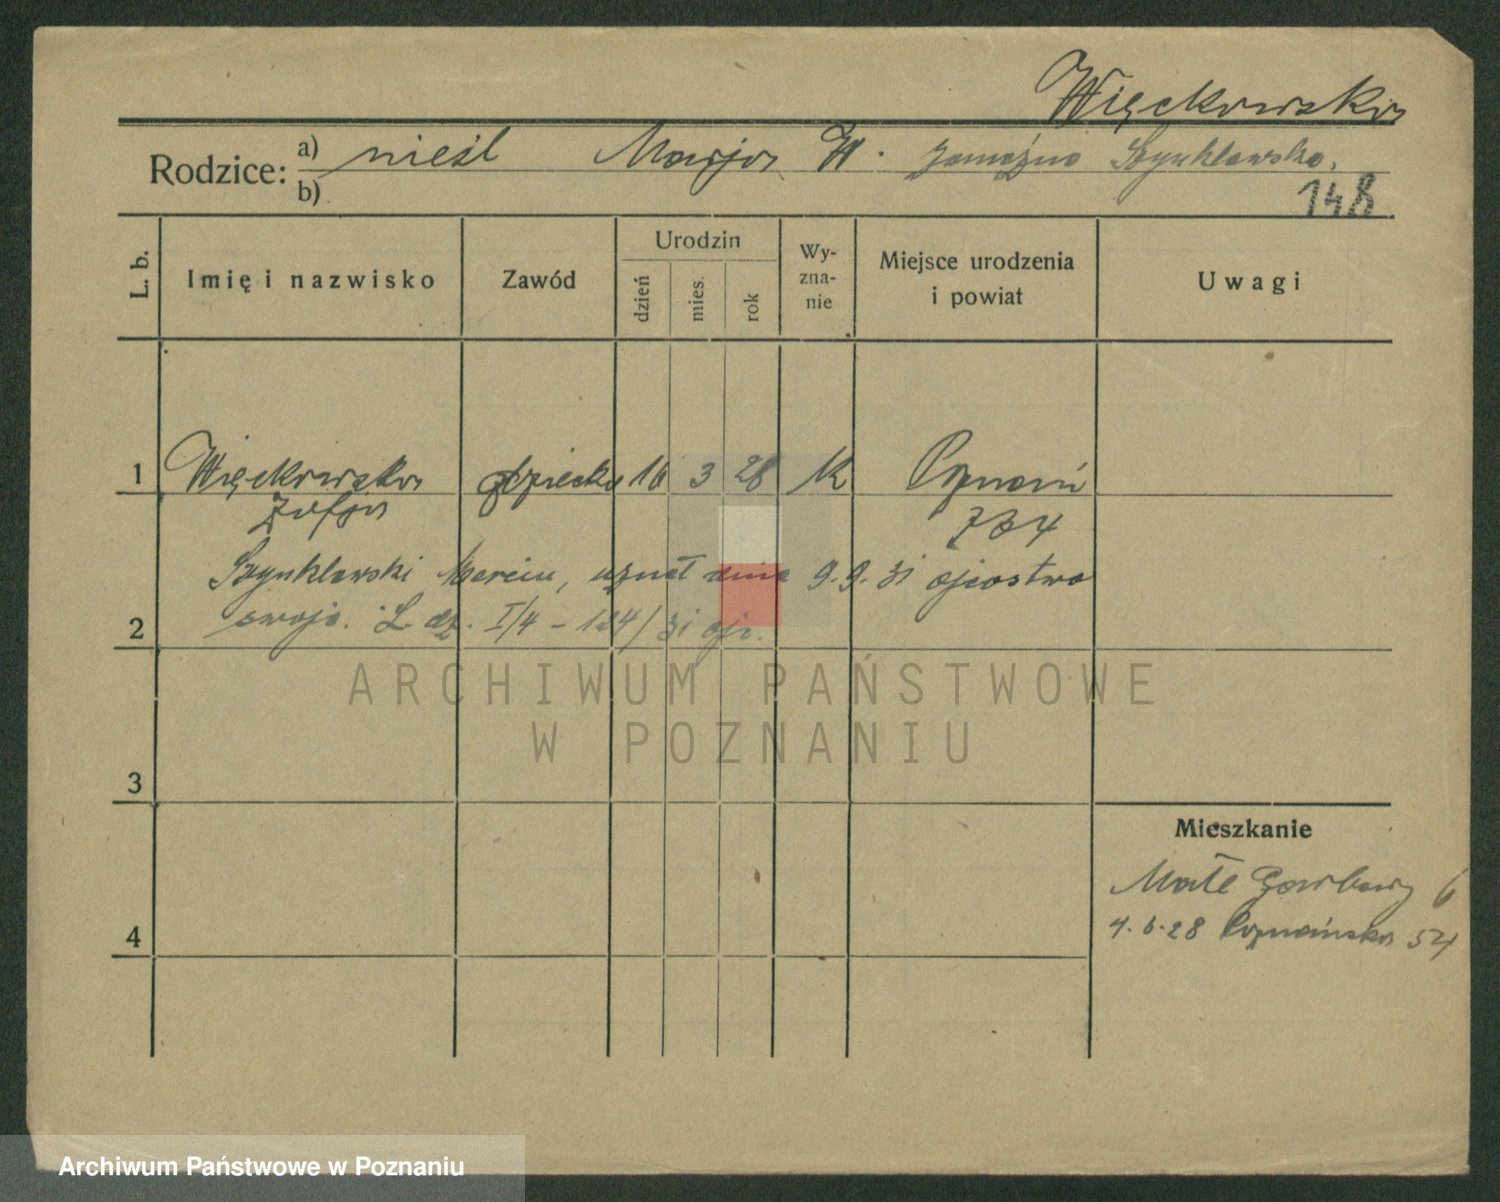 Więckowska
Rodzice: a) nieśl Marja W. zamężna Szynklewska.
b) 148
L. b. Imię i nazwisko Zawód Urodzin dzień mies. rok Wy-zna-nie Miejsce urodzenia i powiat Uwagi
1 Więckowska dziecko 16 3 28 K Poznań
Zofja 734
Szynklewski Marcin, uznał dnia 9.9.31 ojcostwo
2 swoje. L dz. I/4 - 124/31 ojc.
ARCHIWUM PAŃSTWOWE
W POZNANIU
3
Mieszkanie
Małe Garbary 6
4 4.6.28 Poznańska 54
Archiwum Państwowe w Poznaniu